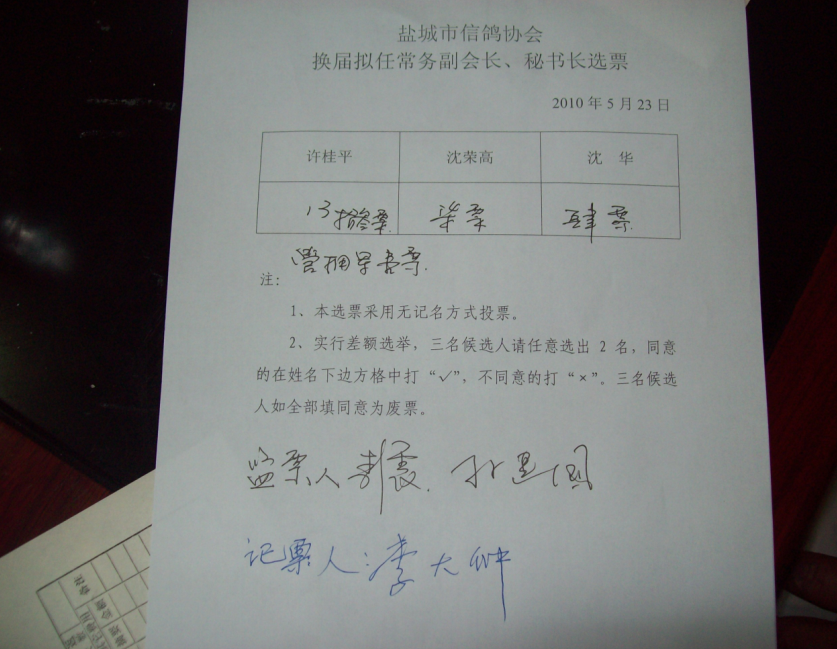 盐城市信鸽协会
换届拟任常务副会长、秘书长选票
2010 年 5 月 23 日
许桂平 沈荣高 沈 华
13 拾叁票 柒票 肆票
注：
1、本选票采用无记名方式投票。
2、实行差额选举，三名候选人请任意选出 2 名，同意
的在姓名下边方格中打“√”，不同意的打“×”。三名候选
人如全部填同意为废票。
监票人
记票人：李大钟